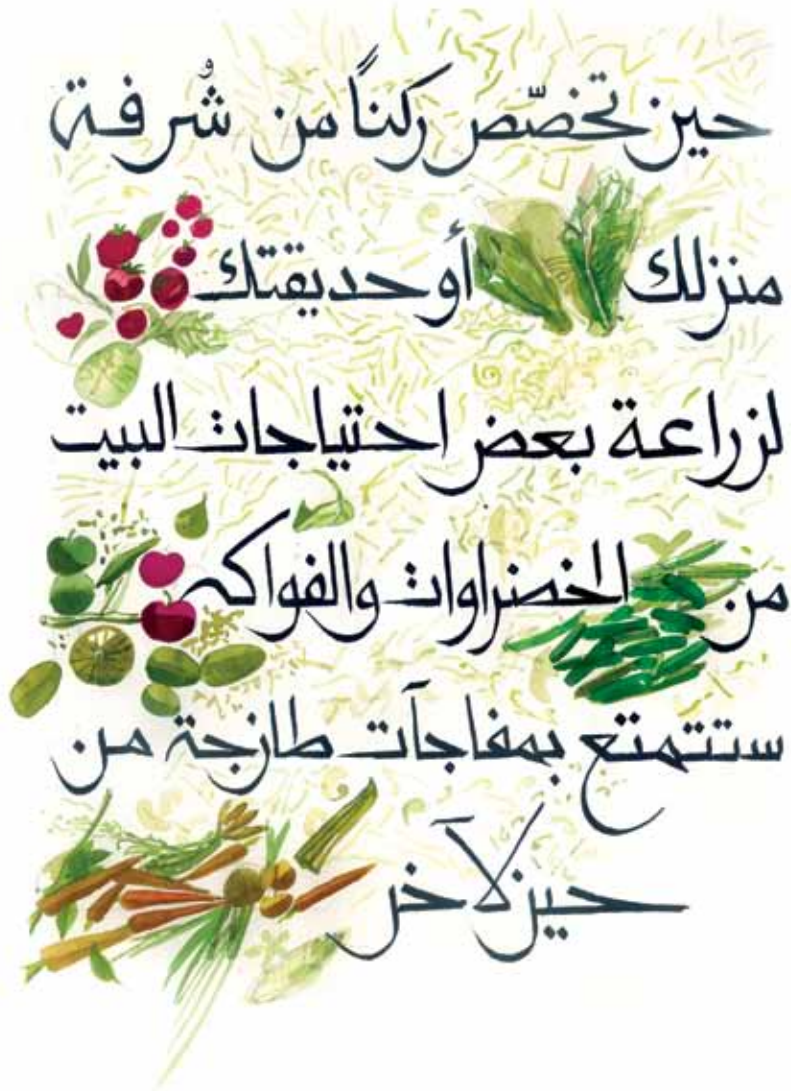 حين تخصّص ركناً من شُرفة
منزلك أو حديقتك
لزراعة بعض احتياجات البيت
من الخضراوات والفواكه
ستتمتع بمفاجآت طازجة من
حين لآخر